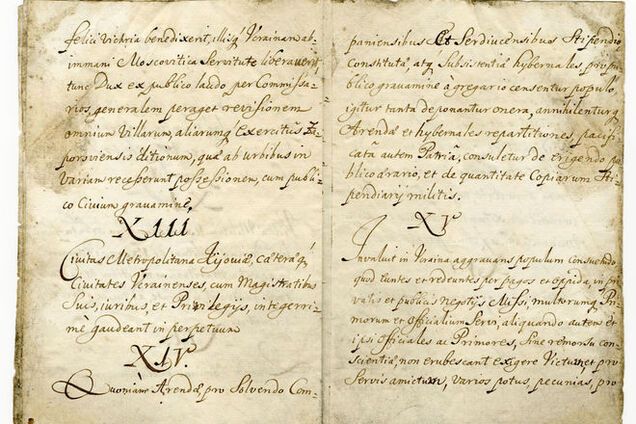 felici victria benedixerit, illisq́ Vcrainam ab
immani Moscovitica Servitute liberaverit
tunc Dux ex publico laudo, per Commissa-
rios, generalem peraget revisionem
omnium Villarum, aliarumq́ Exercitus Za-
porowiensis ditionum, quæ ab urbibus in
variam recesserunt possessionem, cum publi-
co Civium gravamine,
XIII
Civitas Metropolitana Kijoviæ, cæteræq́
Civitates Vcrainenses, cum Magistratibus
Suis, iuribus, et Privilegijs, integerri-
me gaudeant in perpetuum
XIV.
Quoniam Arendæ, pro Solvendo Com-
paniensibus Et Serdiucensibus Stipendio
Constitutæ, atq́ Subsistentiæ hybernales, pro pu-
blico gravamine á gregario censentur populo,
igitur tanta deponantur onera, annihilenturq́
Arendæ et hybernales repartitiones, pacifi-
catâ autem Patriâ, consuletur de erigendo pu-
blico ærario, et de quantitate Copiarum Sti-
pendiarij militis.
XV
Invaluit in Vcraina aggravans populum Consuetudo
quod euntes et redeuntes per pagos et oppida, in pri-
vatis et publicis Negotijs Missi, multorumq́ Pri-
morum et Officialium Servi, aliquando autem et
ipsi Officiales ac Primores, Sine remorsu con-
scientiæ, non erubescant exigere Victum et pro
Servis amictum, varios potus, pecunias, pro